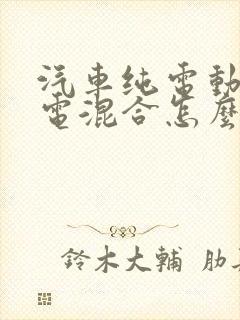 汽車纯電動
電混合怎麼
鈴木大輔 肋